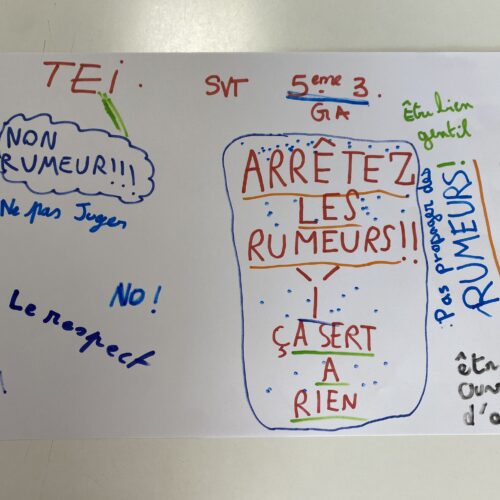 TEi.
SVT 5eme 3.
GA
NON
RUMEUR!!!
Ne pas Juger
NO!
Le respect
ARRÊTEZ
LES
RUMEURS!!
ÇA SERT
A
RIEN
Être bien
gentil
Pas propager des
RUMEURS!
êtr
Ouv
d'